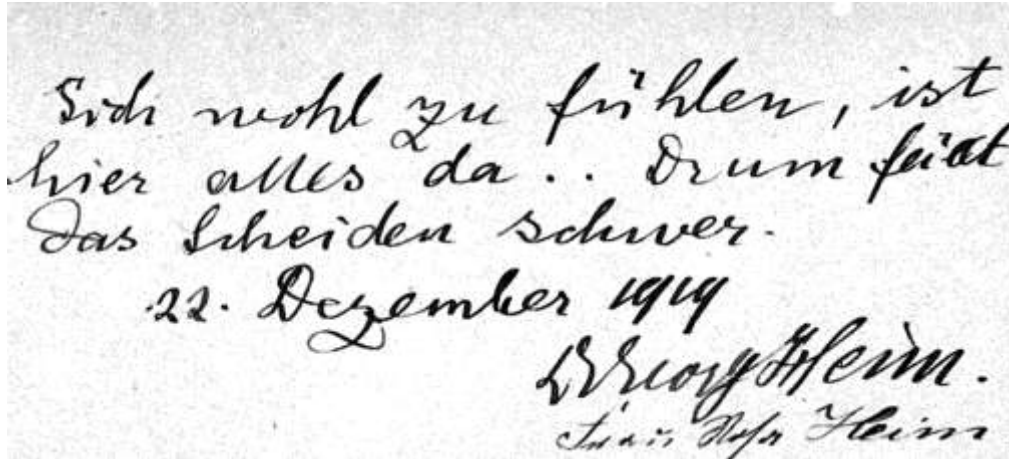 Sich wohl zu fühlen, ist
hier alles da.. Drum fällt
das Scheiden schwer.
22. Dezember 1919
Georg Heim.
Frau Heim